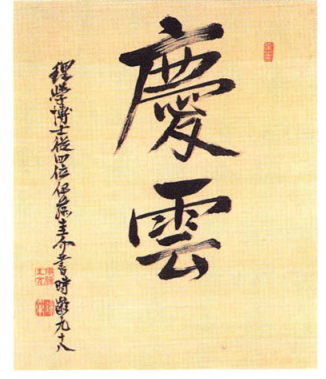 慶雲
理学博士従四位伊藤圭介書時齢九十八